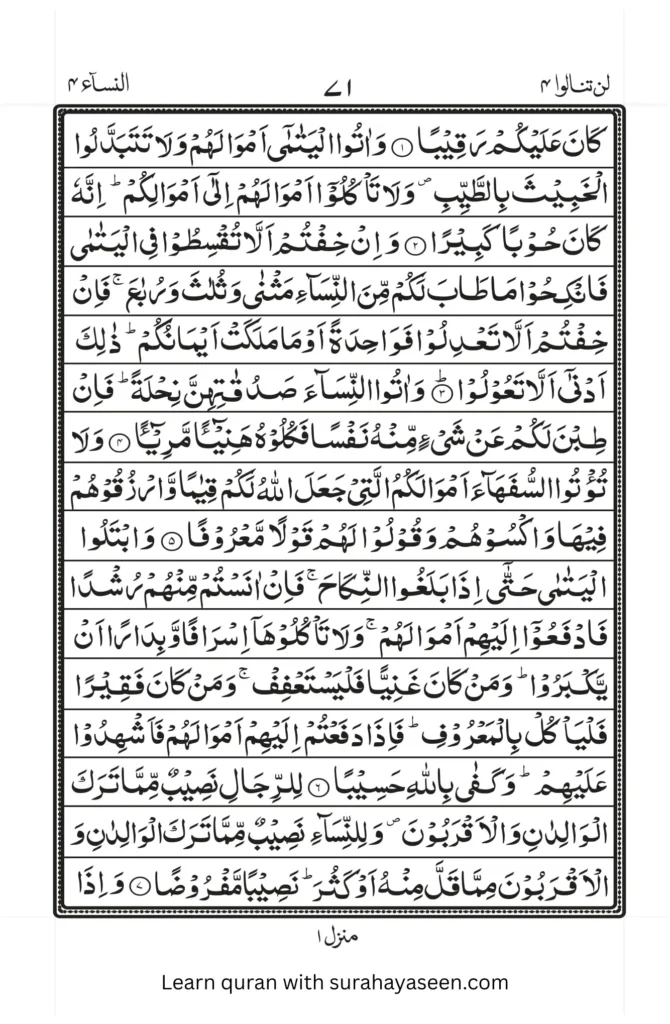 لن تنالوا ۴ ۷۱ النسآء ۴
كَانَ عَلَيْكُمْ رَقِيْبًا ۝۱ وَاٰتُوا الْيَتٰمٰٓى اَمْوَالَهُمْ وَلَا تَتَبَدَّلُوا
الْخَبِيْثَ بِالطَّيِّبِ ۪ وَلَا تَاْكُلُوْٓا اَمْوَالَهُمْ اِلٰٓى اَمْوَالِكُمْ ؕ اِنَّهٗ
كَانَ حُوْبًا كَبِيْرًا ۝۲ وَاِنْ خِفْتُمْ اَلَّا تُقْسِطُوْا فِي الْيَتٰمٰى
فَانْكِحُوْا مَا طَابَ لَكُمْ مِّنَ النِّسَآءِ مَثْنٰى وَثُلٰثَ وَرُبٰعَ ۚ فَاِنْ
خِفْتُمْ اَلَّا تَعْدِلُوْا فَوَاحِدَةً اَوْ مَا مَلَكَتْ اَيْمَانُكُمْ ؕ ذٰلِكَ
اَدْنٰٓى اَلَّا تَعُوْلُوْا ۝۳ؕ وَاٰتُوا النِّسَآءَ صَدُقٰتِهِنَّ نِحْلَةً ؕ فَاِنْ
طِبْنَ لَكُمْ عَنْ شَيْءٍ مِّنْهُ نَفْسًا فَكُلُوْهُ هَنِيْٓـًٔا مَّرِيْٓـًٔا ۝۴ وَلَا
تُؤْتُوا السُّفَهَآءَ اَمْوَالَكُمُ الَّتِيْ جَعَلَ اللّٰهُ لَكُمْ قِيٰمًا وَّارْزُقُوْهُمْ
فِيْهَا وَاكْسُوْهُمْ وَقُوْلُوْا لَهُمْ قَوْلًا مَّعْرُوْفًا ۝۵ وَابْتَلُوا
الْيَتٰمٰى حَتّٰٓى اِذَا بَلَغُوا النِّكَاحَ ۚ فَاِنْ اٰنَسْتُمْ مِّنْهُمْ رُشْدًا
فَادْفَعُوْٓا اِلَيْهِمْ اَمْوَالَهُمْ ۚ وَلَا تَاْكُلُوْهَآ اِسْرَافًا وَّبِدَارًا اَنْ
يَّكْبَرُوْا ؕ وَمَنْ كَانَ غَنِيًّا فَلْيَسْتَعْفِفْ ۚ وَمَنْ كَانَ فَقِيْرًا
فَلْيَاْكُلْ بِالْمَعْرُوْفِ ؕ فَاِذَا دَفَعْتُمْ اِلَيْهِمْ اَمْوَالَهُمْ فَاَشْهِدُوْا
عَلَيْهِمْ ؕ وَكَفٰى بِاللّٰهِ حَسِيْبًا ۝۶ لِلرِّجَالِ نَصِيْبٌ مِّمَّا تَرَكَ
الْوَالِدٰنِ وَالْاَقْرَبُوْنَ ۪ وَلِلنِّسَآءِ نَصِيْبٌ مِّمَّا تَرَكَ الْوَالِدٰنِ وَ
الْاَقْرَبُوْنَ مِمَّا قَلَّ مِنْهُ اَوْ كَثُرَ ؕ نَصِيْبًا مَّفْرُوْضًا ۝۷ وَاِذَا
منزل ۱
Learn quran with surahayaseen.com